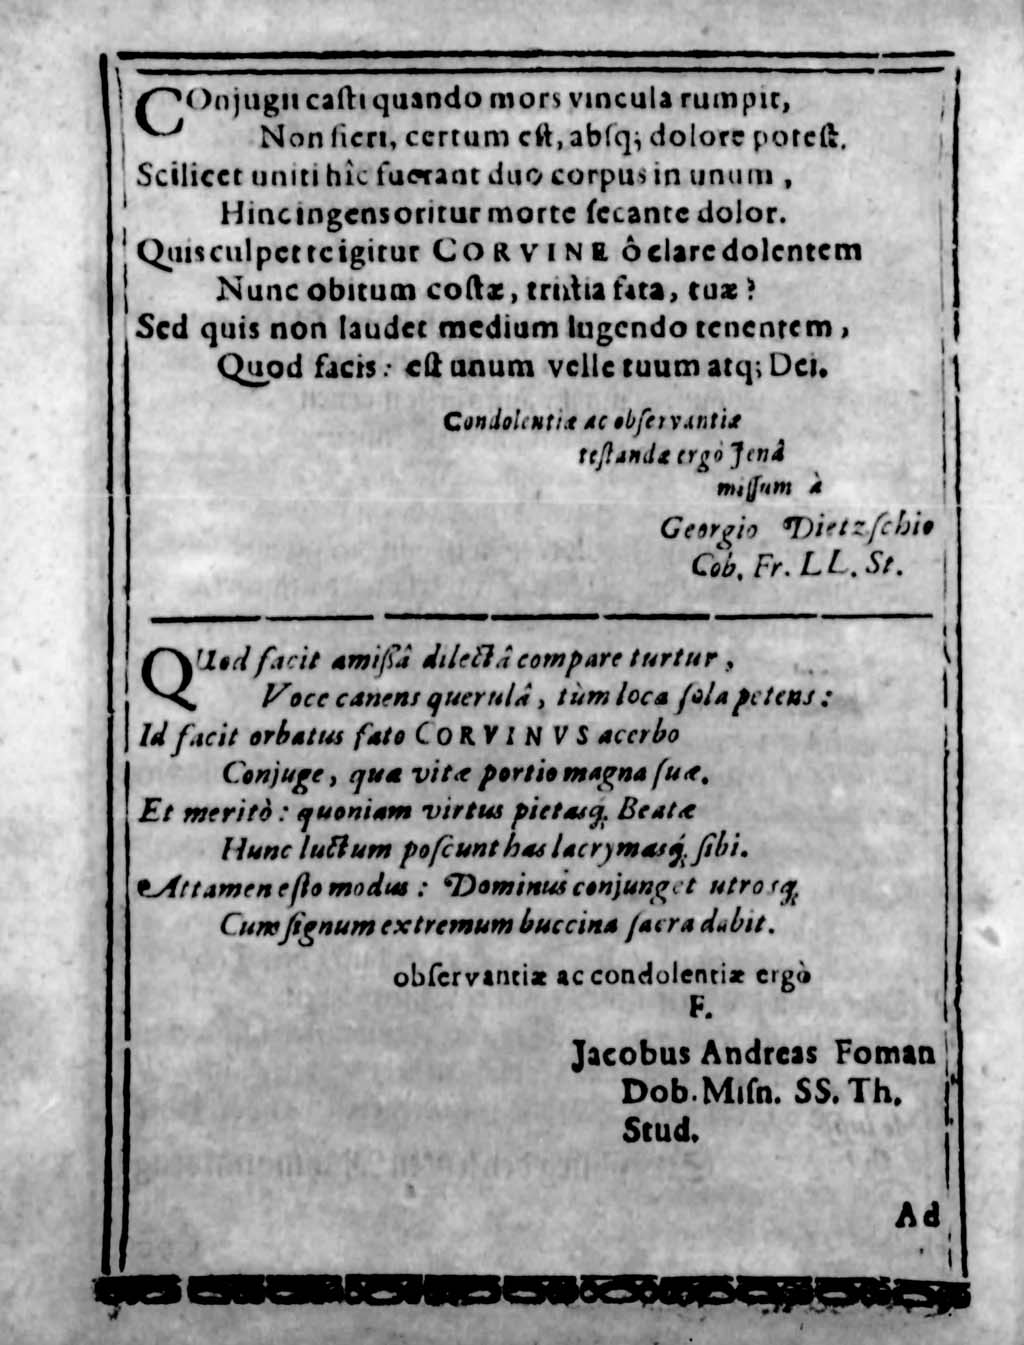 COnjugii caſti quando mors vincula rumpit,
Non fieri, certum eſt, abſq; dolore poteſt.
Scilicet uniti hîc fuerant duo corpus in unum,
Hinc ingens oritur morte ſecante dolor.
Quis culpet te igitur CORVINE ô clare dolentem
Nunc obitum coſtæ, triſtia fata, tuæ?
Sed quis non laudet medium lugendo tenentem,
Quod facis: eſt unum velle tuum atq; Dei.
Condolentiæ ac obſervantiæ
teſtandæ ergò Jenâ
miſſum à
Georgio Dietzſchio
Cob. Fr. LL. St.
QUod facit amiſsâ dilectâ compare turtur,
Voce canens querulâ, tùm loca ſola petens:
Id facit orbatus fato CORVINVS acerbo
Conjuge, quæ vitæ portio magna ſuæ.
Et meritò: quoniam virtus pietasq; Beatæ
Hunc luctum poſcunt has lacrymasq́; ſibi.
Attamen eſto modus: Dominus conjunget utrosq;
Cum ſignum extremum buccina ſacra dabit.
obſervantiæ ac condolentiæ ergò
F.
Jacobus Andreas Foman
Dob. Miſn. SS. Th.
Stud.
Ad